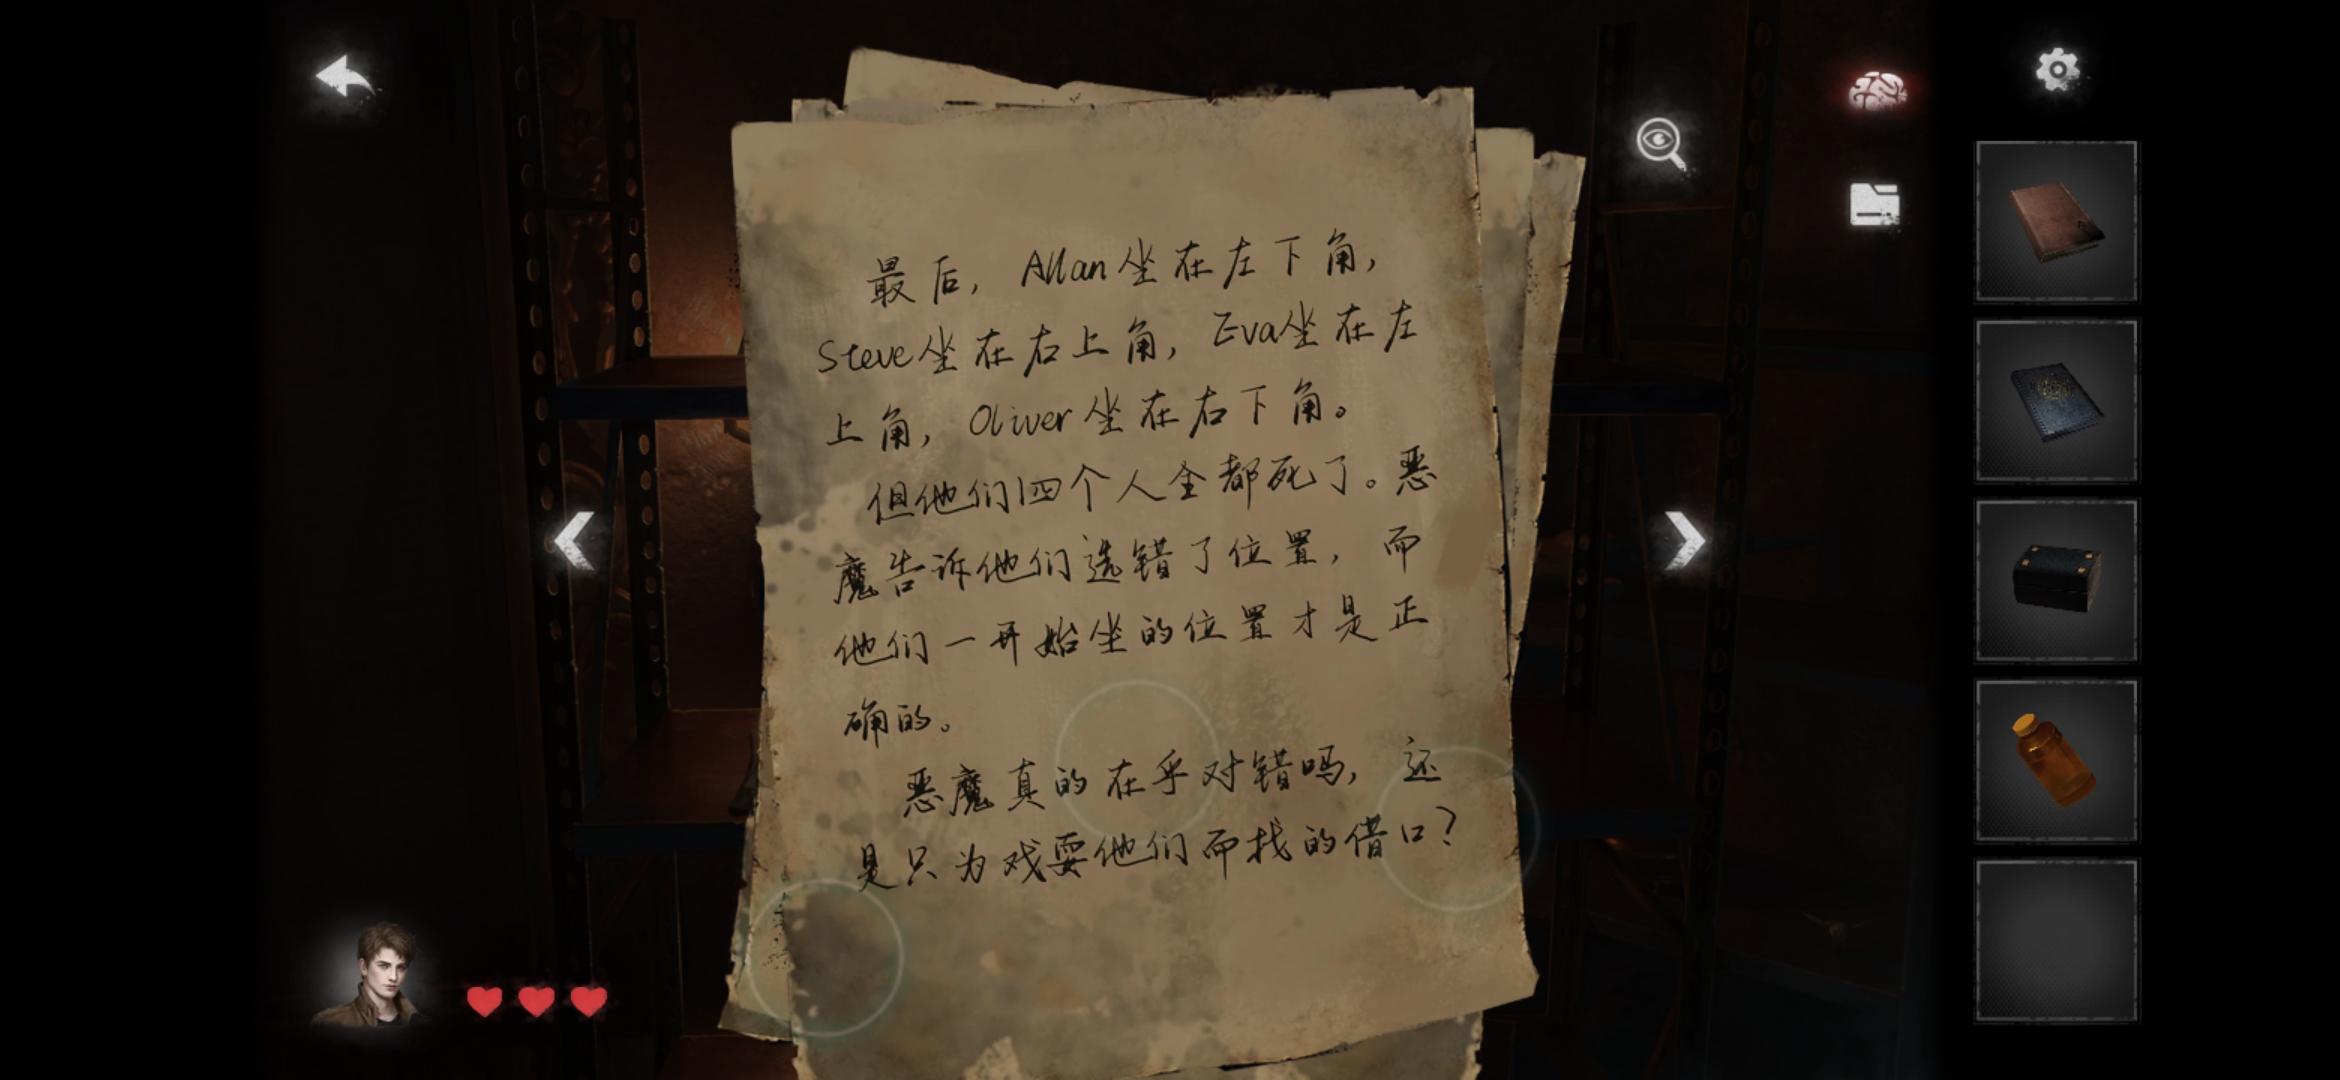 最后，Allan坐在左下角，
Steve坐在右上角，Eva坐在左
上角，Oliver坐在右下角。
但他们四个人全都死了。恶
魔告诉他们选错了位置，而
他们一开始坐的位置才是正
确的。
恶魔真的在乎对错吗，还
是只为戏耍他们而找的借口？